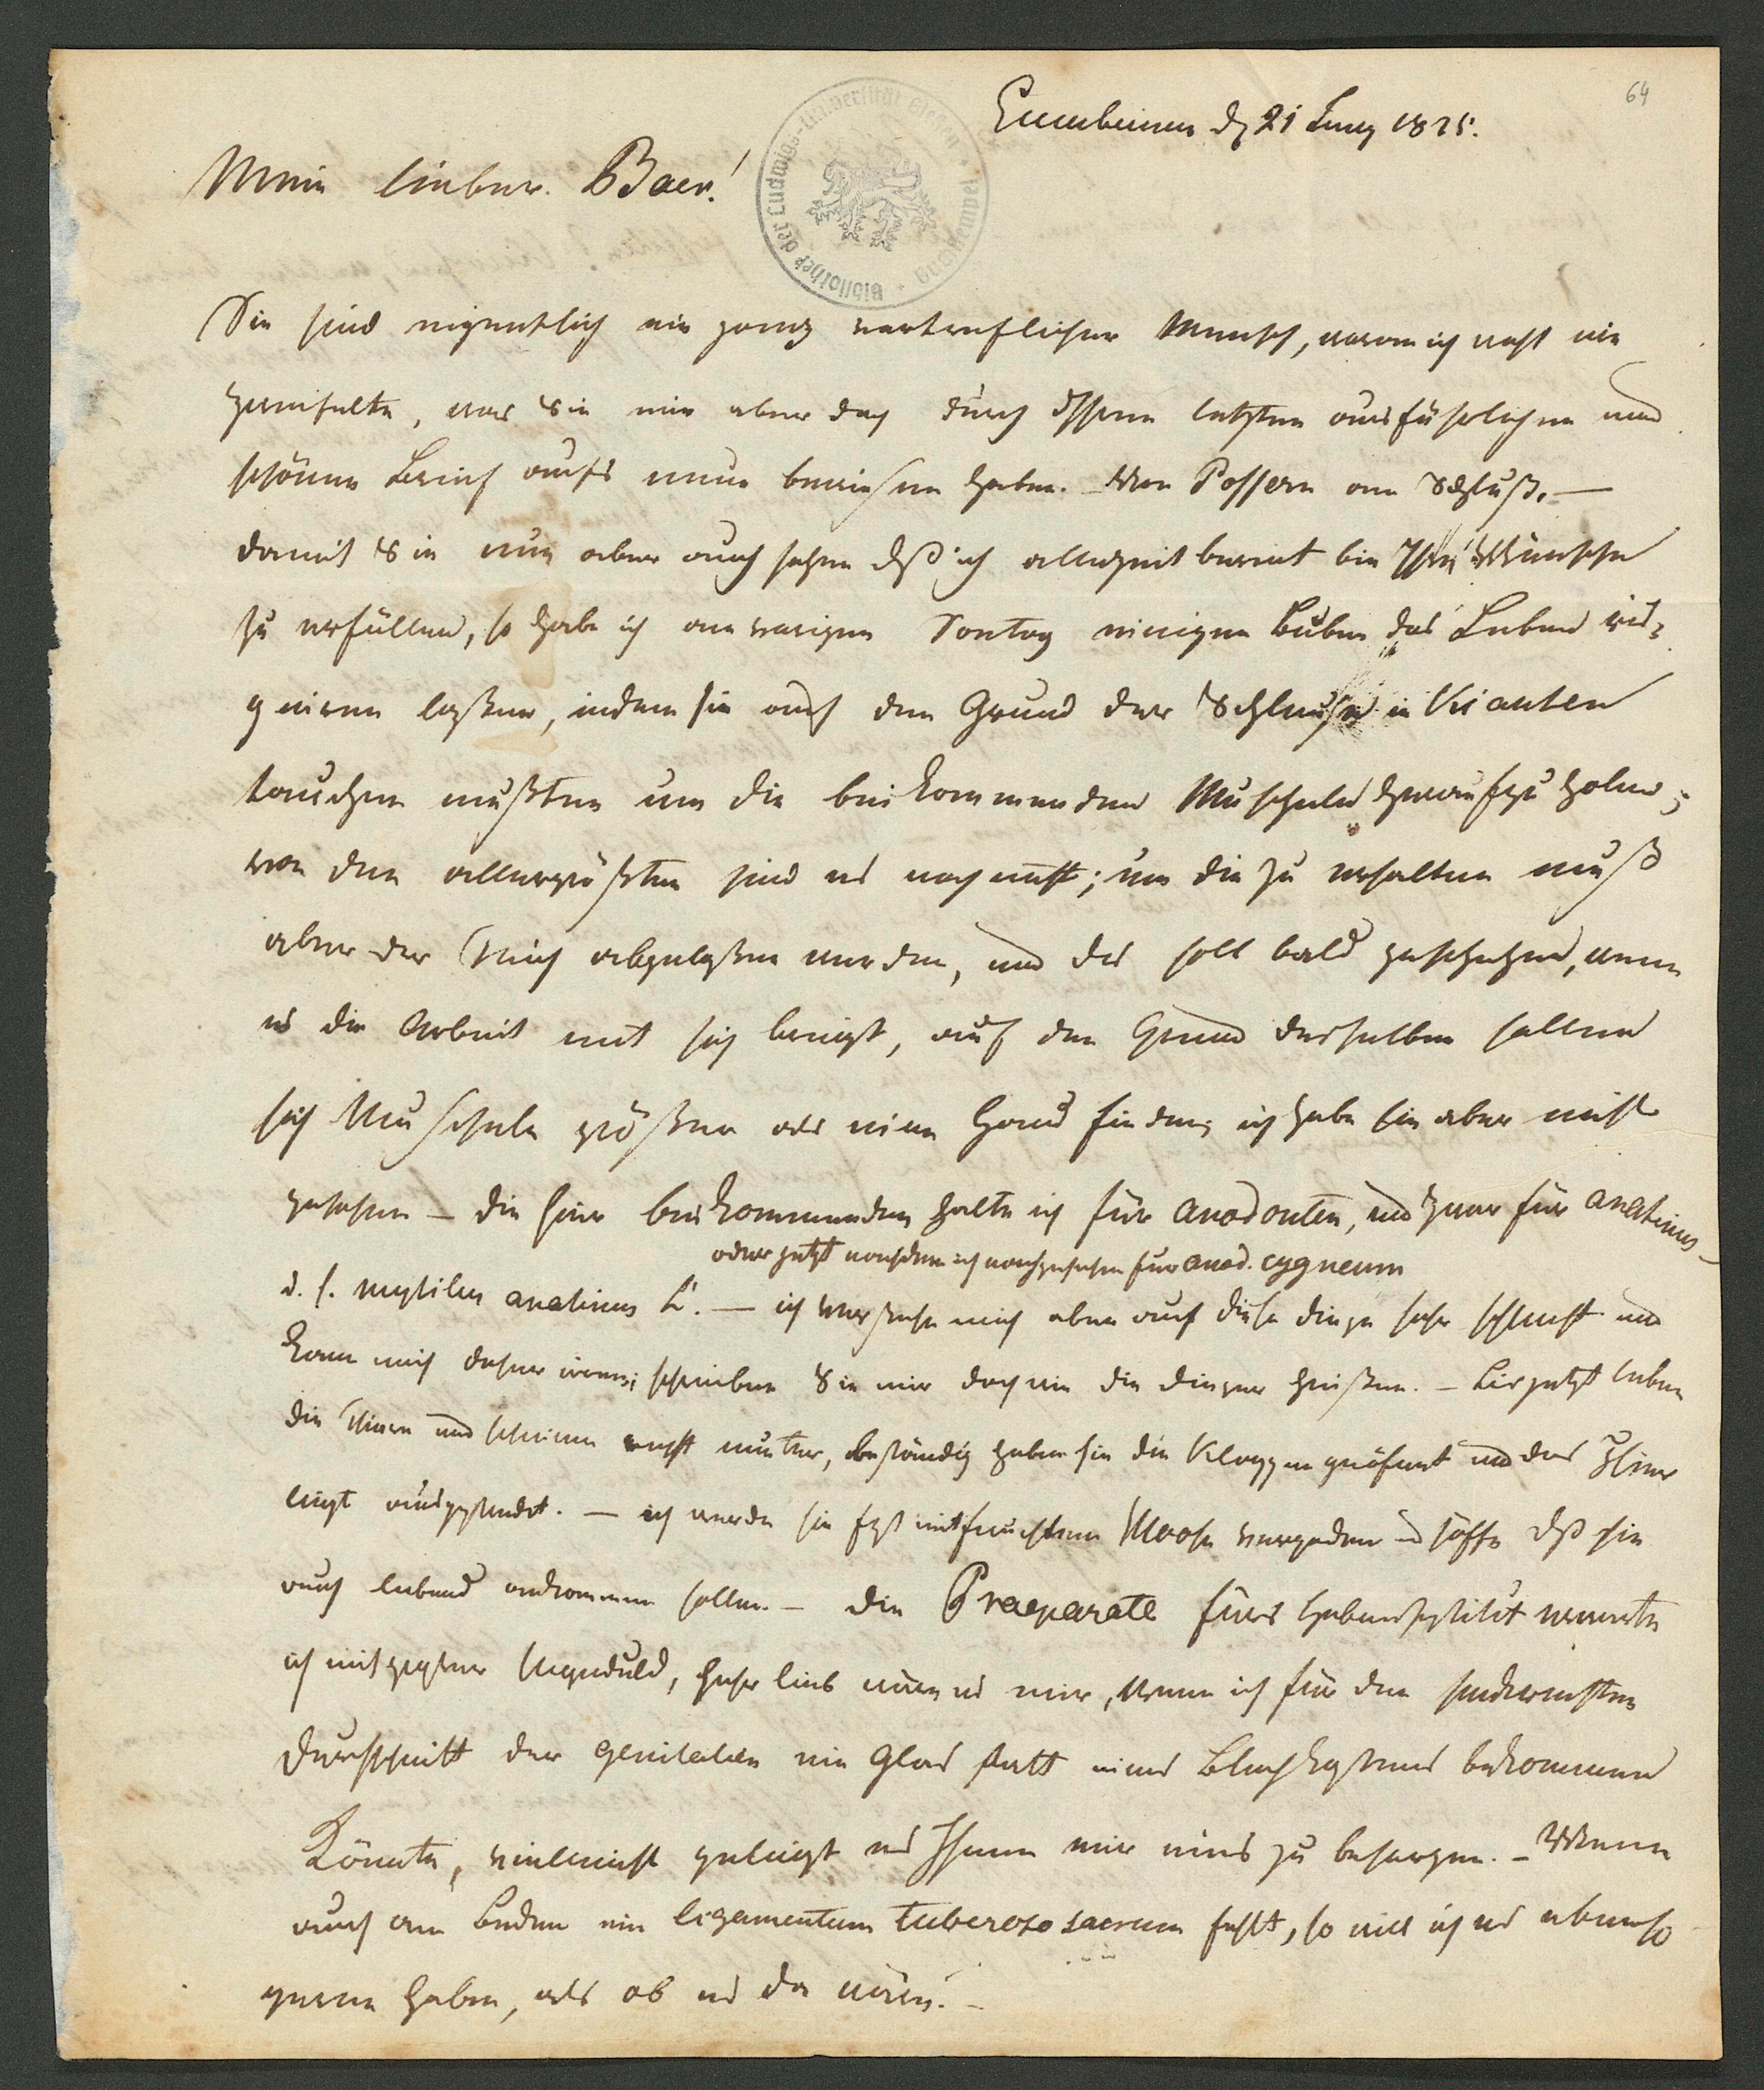 64
Gumbinnen d 21 Juny 1825.
Mein lieber Baer!
Bibliothek der Ludwigs-Universität Giessen
Sie sind eigentlich ein ganz vortreflicher Mensch, woran ich nicht nie
zweifelte, was Sie mir aber doch durch Ihren letzten ausführlichen und
schönen Brief aufs neue bewiesen haben. – Von Possern am Schluß. –
damit Sie nun aber auch sehen dß ich allezeit bereit bin Ihre Wünsche
zu erfüllen, so habe ich am vorigen Sontag einigen Buben das Leben ris-
quiren laßen, indem sie auf den Grund der Schleuse in Kianten
tauchen mußten um die beikommenden Muscheln heraufzuholen;
von den allergrößten sind es noch nicht; um die zu erhalten muß
aber der Teich abgelaßen werden, und das soll bald geschehen, wenn
es die Arbeit mit sich bringt, auf den Grund desselben sollen
sich Muscheln größer als eine Hand finden, ich habe sie aber nicht
gesehen – die hier beikommenden halte ich für Anodonten, und zwar für anatinus –
oder jetzt nachdem ich nachgesehen für anod. cygneum
d. h. mytilus anatinus L. – ich verstehe mich aber auf diese dinge sehr schlecht und
kann mich daher irren; schreiben Sie mir doch wie die dinger heißen. – Bis jetzt leben
die Thiere und scheinen recht munter, beständig haben sie die Klappen geöfnet und das Thier
liegt ausgestreckt. – ich werde sie fest mit feuchtem Moose verpacken und hoffe dß sie
auch lebend ankommen sollen. – die Praeparate fürs Hebeinstitut erwarte
ich mit gegter Ungeduld, sehr lieb wäre es mir, wenn ich für den senkrechten
Durchschnitt der genitalien ein Glas statt eines Blechkastens bekommen
könnte, vielleicht gelingt es Ihnen mir eins zu besorgen. – Wenn
auch am Becken ein ligamentum tuberoso sacrum fehlt, so will ich es ebenso
gerne haben, als ob es da wäre. –